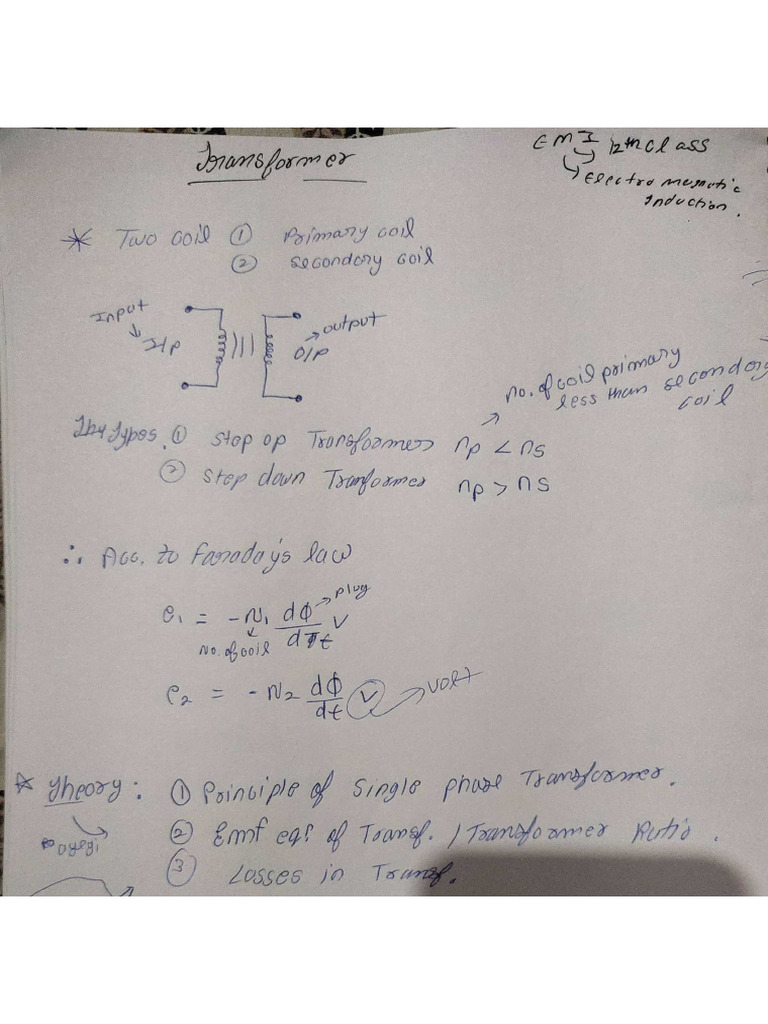 Transformer
EMI 12th class
Electro magnetic
Induction.
* Two coil ① Primary coil
② secondary coil
Input
I/p
output
O/p
no. of coil primary
less than secondary
coil
Types. ① Step up Transformers np < ns
② Step down Tranformer np > ns
∴ Acc. to Faraday's law
e1 = -N1 dΦ/dt V
plug
No. of coil
e2 = -N2 dΦ/dt V
volt
* Theory: ① Principle of single phase Transformer.
② Emf eqn of Transf. / Transformer Ratio.
③ Losses in Transf.